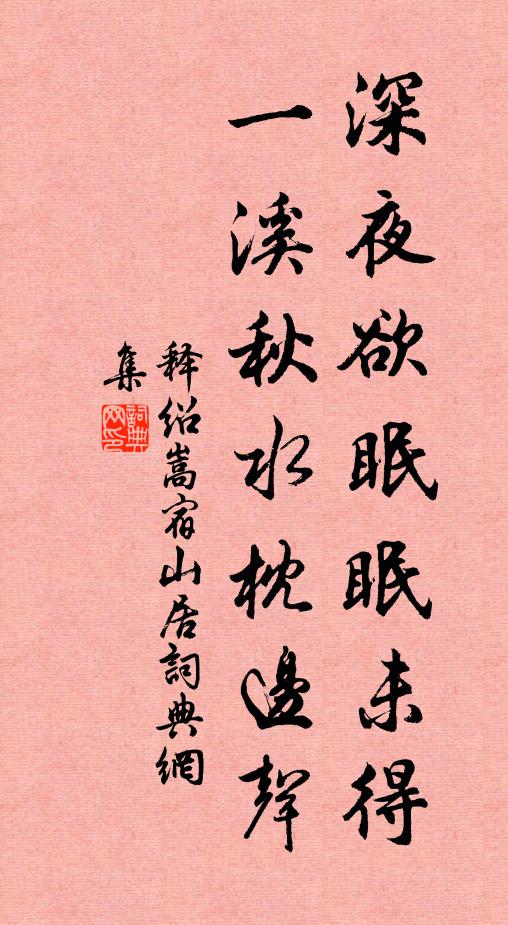 深夜欲眠眠未得
一溪秋水枕邊聲
释绍嵩宿山居詞典網
集
詞典
网印